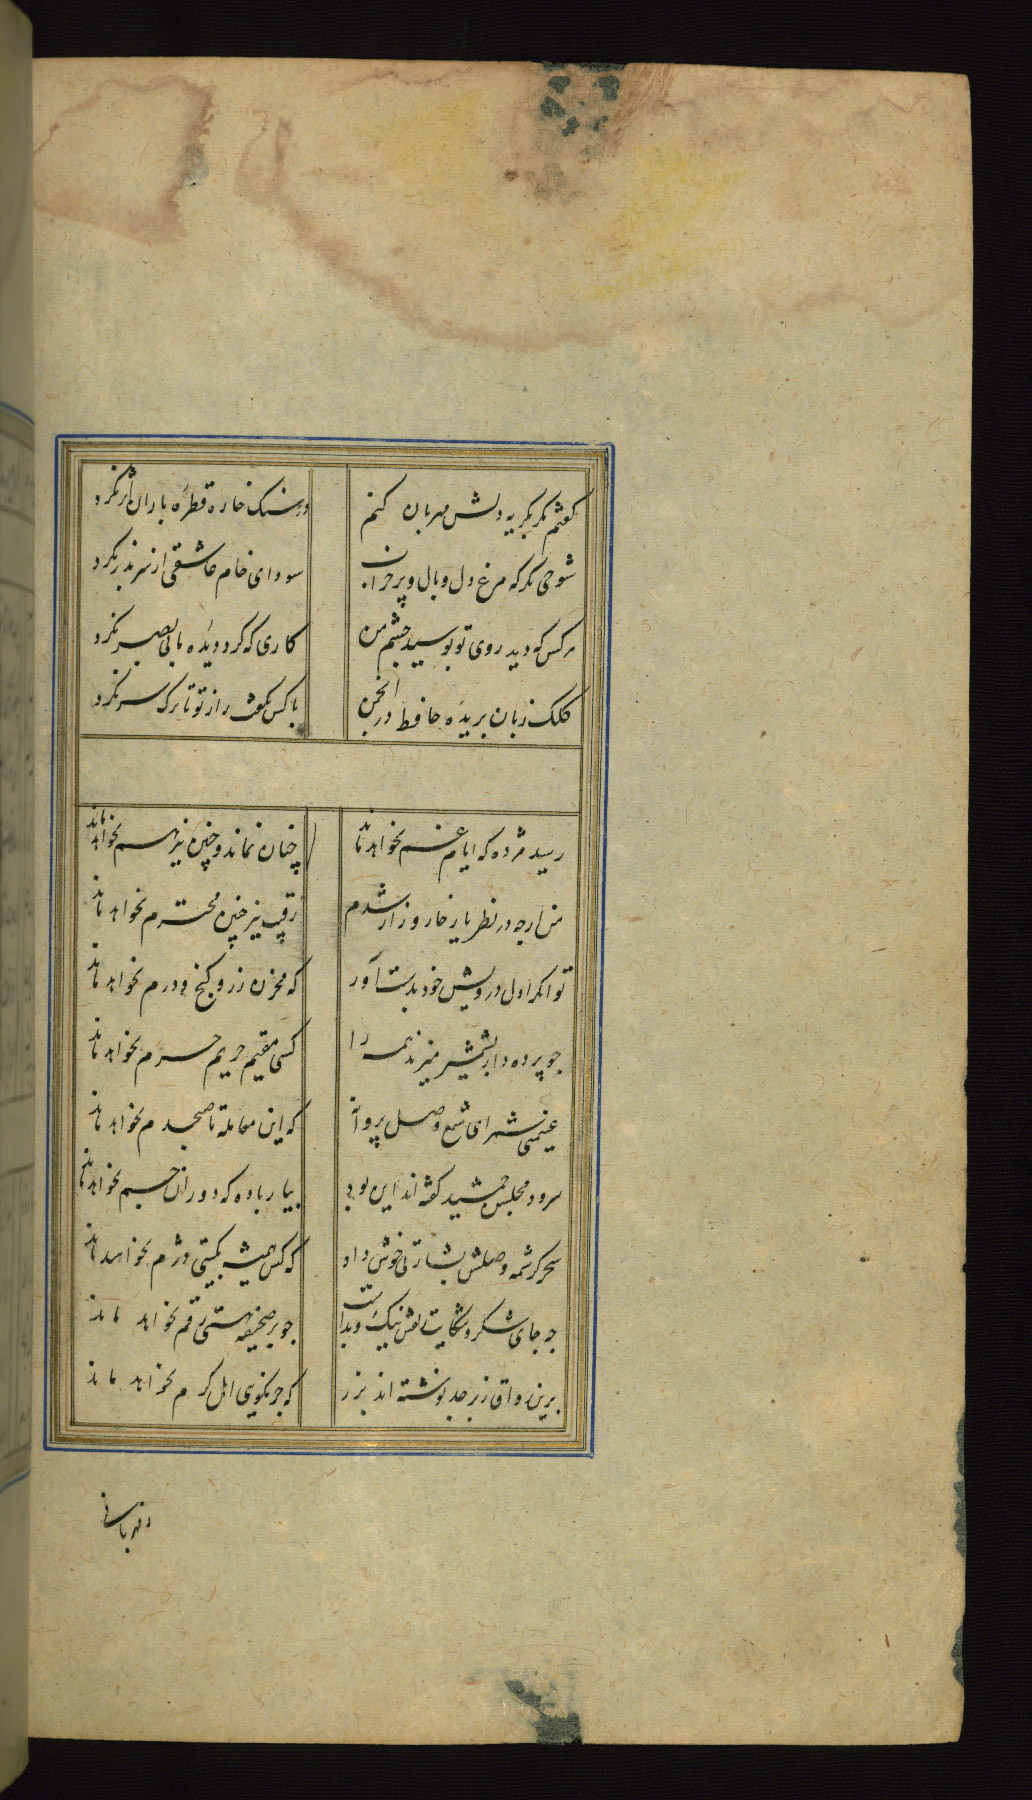 گفتم مگر بگریه دلش مهربان کنم در سنگ خاره قطره باران اثر نکرد
شوخی نکر که مرغ دل و بال و پر سودای خام عاشقی از سر بدر نکرد
هر کس که دید روی تو بوسید چشم من کاری که کرد دیده ما بی بصر نکرد
کلک زبان بریده حافظ در انجمن با کس نگفت راز تو تا ترک سر نکرد
رسید مژده که ایام غم نخواهد ماند چنان نماند و چنین نیز هم نخواهد ماند
من ارچه در نظر یار خار و زار شدم رقیب نیز چنین محترم نخواهد ماند
توانکرا دل درویش خود بدست آور که مخزن زر و کنج و درم نخواهد ماند
جو پرده دار بشمشیر میزند همه را کسی مقیم حریم حرم نخواهد ماند
غنیمتی شمر ای شمع وصل پروانه که این معامله تا صبحدم نخواهد ماند
سرود مجلس جمشید کفته اند این بود بیار باده که دوران جم نخواهد ماند
سحر کرشمه وصلش بشارتی خوش داد که کس همیشه بکیتی دژم نخواهد ماند
جه جای شکر و شکایت ز نقش نیک و بدست جو بر صحیفه هستی رقم نخواهد ماند
برین رواق زبرجد نوشته اند بزر که جز نکویی اهل کرم نخواهد ماند